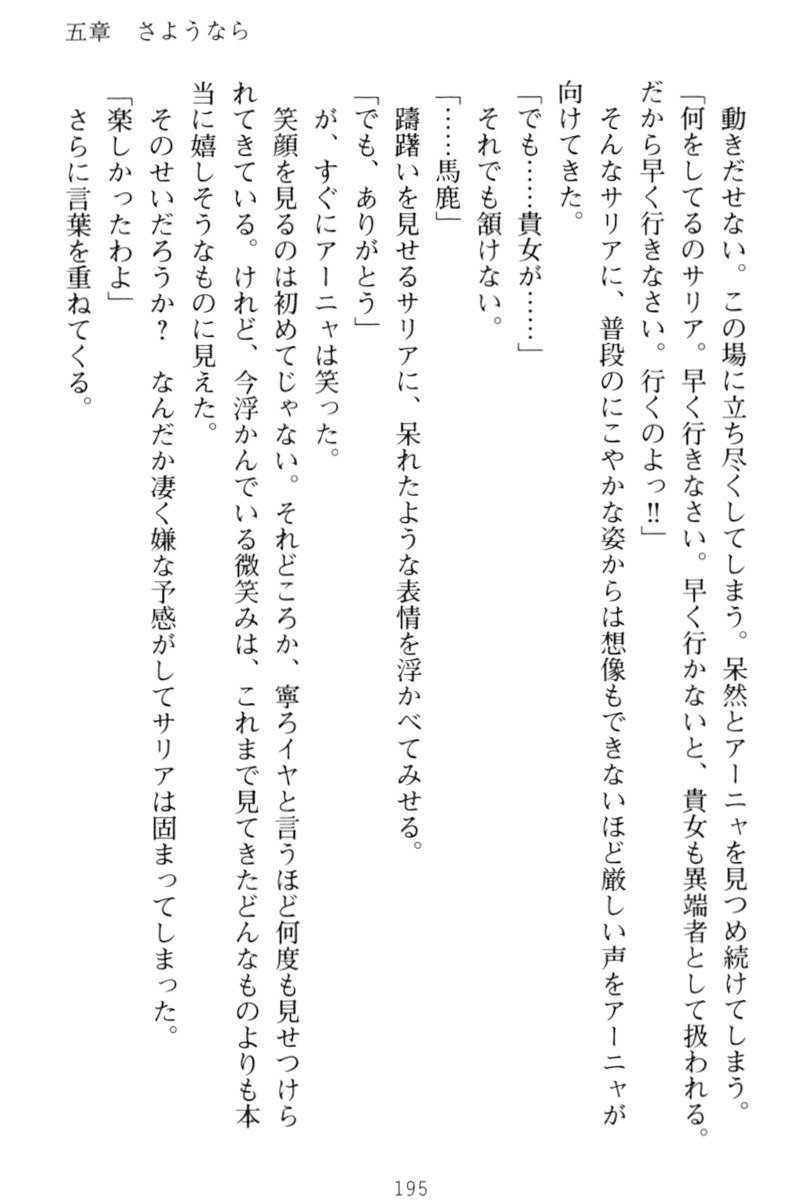 五章　さようなら
　動きだせない。この場に立ち尽くしてしまう。呆然とアーニャを見つめ続けてしまう。
「何をしてるのサリア。早く行きなさい。早く行かないと、貴女も異端者として扱われる。
だから早く行きなさい。行くのよっ!!」
　そんなサリアに、普段のにこやかな姿からは想像もできないほど厳しい声をアーニャが
向けてきた。
「でも……貴女が……」
　それでも頷けない。
「……馬鹿」
　躊躇いを見せるサリアに、呆れたような表情を浮かべてみせる。
「でも、ありがとう」
　が、すぐにアーニャは笑った。
　笑顔を見るのは初めてじゃない。それどころか、寧ろイヤと言うほど何度も見せつけら
れてきている。けれど、今浮かんでいる微笑みは、これまで見てきたどんなものよりも本
当に嬉しそうなものに見えた。
　そのせいだろうか？　なんだか凄く嫌な予感がしてサリアは固まってしまった。
「楽しかったわよ」
　さらに言葉を重ねてくる。
195